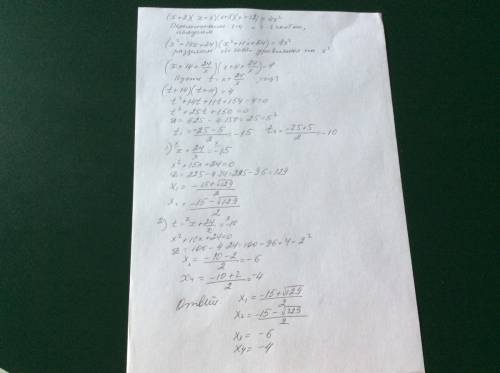 (x+2)(x+3)(x+8)(x+12)=4x²
Перемножим 1 и 4, 2-3 скобки,
получим
(x²+14x+24)(x²+11x+24)=4x²
разделим обе части уравнения на x²
(x+14+24/x)(x+11+24/x)=4
Пусть t=x+24/x, тогда
(t+14)(t+11)=4
t²+14t+11t+154-4=0
t²+25t+150=0
D=625-4·150=25=5²
t₁=(-25-5)/2=-15 t₂=(-25+5)/2=-10
1) x+24/x=-15
x²+15x+24=0
D=225-4·24=225-96=129
x₁=(-15+√129)/2
x₂=(-15-√129)/2
2) t=x+24/x=-10
x²+10x+24=0
D=100-4·24=100-96=4=2²
x₃=(-10-2)/2=-6
x₄=(-10+2)/2=-4
Ответ: x₁=(-15+√129)/2
x₂=(-15-√129)/2
x₃=-6
x₄=-4